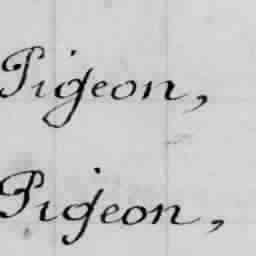 Pigeon,
Pigeon,